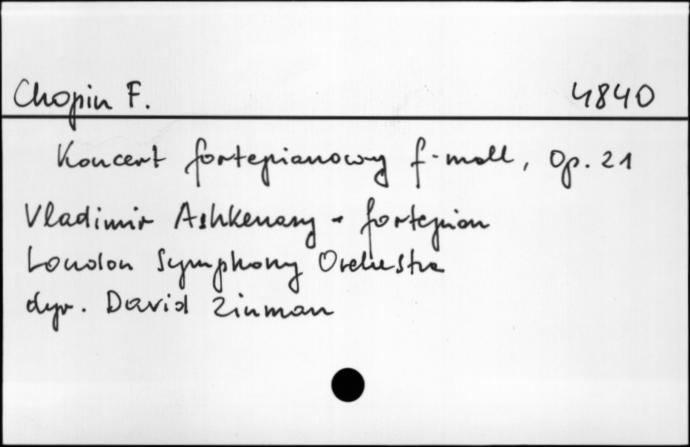 Chopin F. 4840
Koncert fortepianowy f-moll, Op. 21
Vladimir Ashkenazy - fortepian
London Symphony Orchestra
dyr. David Zinman